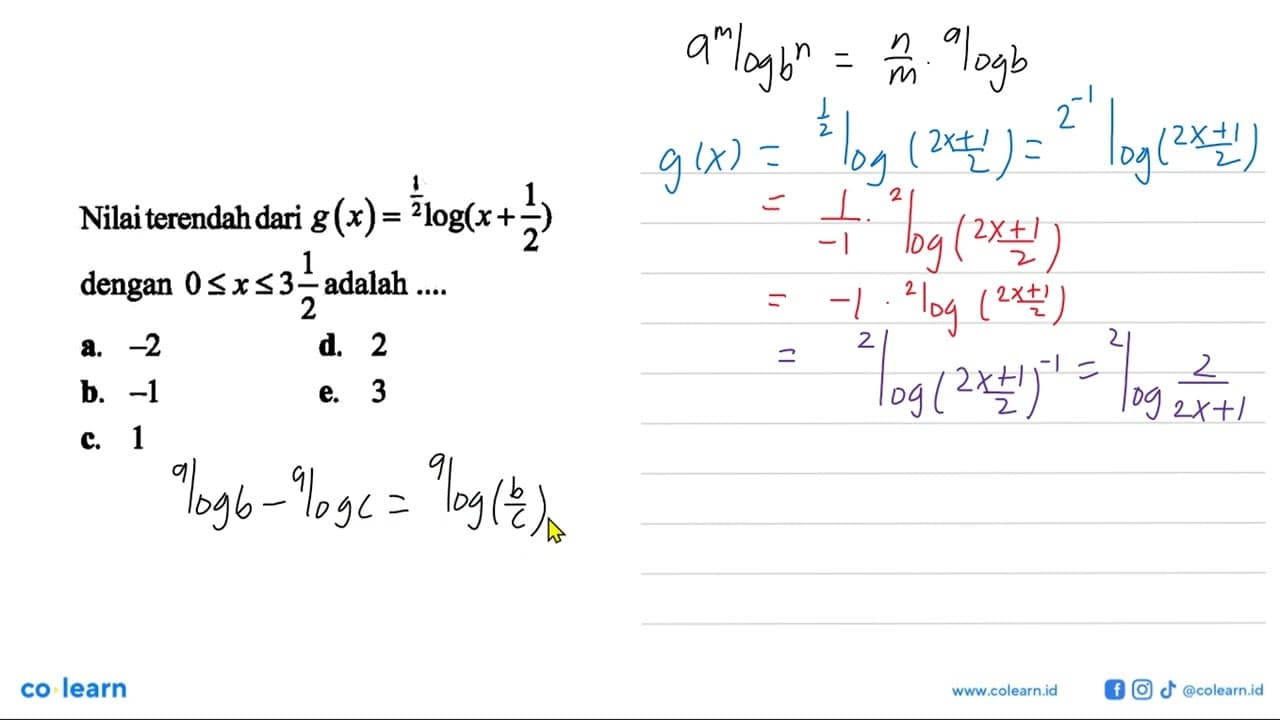 Nilai terendah dari g(x) = ^{1/2}log(x + 1/2)
dengan 0 ≤ x ≤ 3 1/2 adalah ....
a. –2
b. –1
c. 1
d. 2
e. 3
^a log b – ^a log c = ^a log(b/c)
^{a^m} log b^n = n/m · ^a log b
g(x) = ^{1/2} log((2x+1)/2) = ^{2^{-1}} log((2x+1)/2)
= 1/-1 · ^2 log((2x+1)/2)
= -1 · ^2 log((2x+1)/2)
= ^2 log((2x+1)/2)^{-1} = ^2 log 2/(2x+1)
co learn
www.colearn.id
@colearn.id